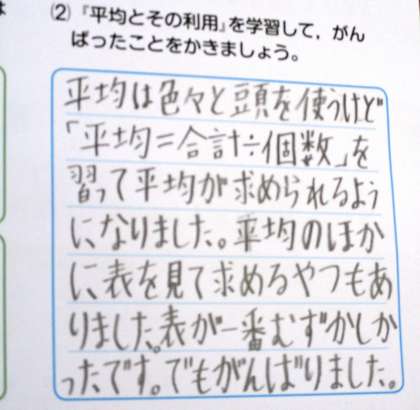 (2)『平均とその利用』を学習して，がん
ばったことをかきましょう。
平均は色々と頭を使うけど
「平均＝合計÷個数」を
習って平均が求められるよう
になりました。平均のほか
に、表を見て求めるやつもあ
りました。表が一番むずかしか
ったです。でもがんばりました。